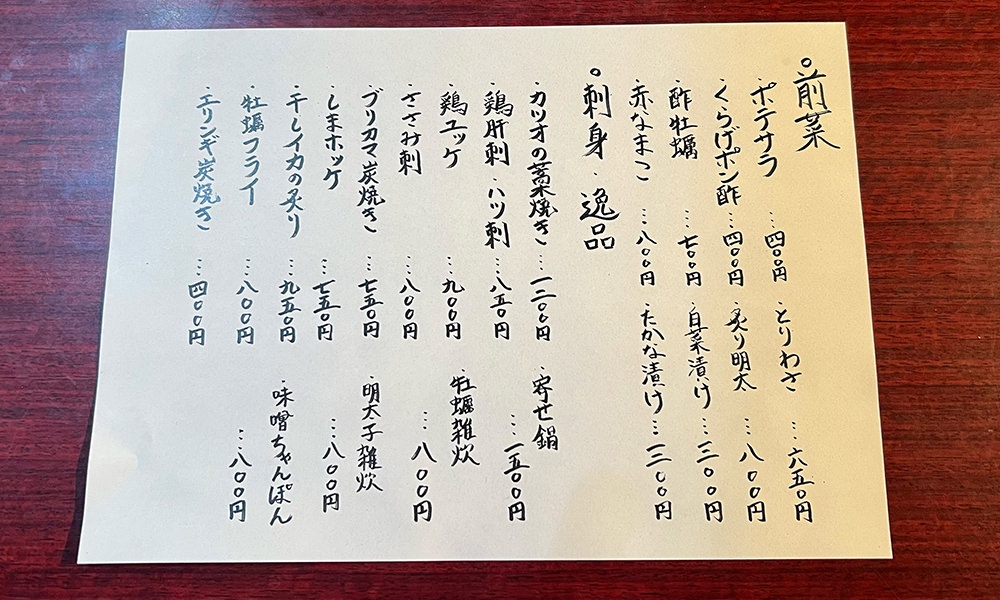 ○前菜
・ポテサラ …四〇〇円
・くらげポン酢…四〇〇円
・酢牡蠣 …七〇〇円
・赤なまこ …八〇〇円
・とりわさ …六五〇円
・炙り明太 …八〇〇円
・白菜漬け…三〇〇円
・たかな漬け…三〇〇円
○刺身・逸品
・カツオの藁焼き…一二〇〇円
・鶏肝刺・ハツ刺…八五〇円
・鶏ユッケ …九〇〇円
・ささみ刺 …八〇〇円
・ブリカマ炭焼き…七五〇円
・しまホッケ …七五〇円
・干しイカの炙り…九五〇円
・牡蠣フライ …八〇〇円
・エリンギ炭焼き…四〇〇円
・寄せ鍋
…一五〇〇円
・牡蠣雑炊
…八〇〇円
・明太子雑炊
…八〇〇円
・味噌ちゃんぽん
…八〇〇円